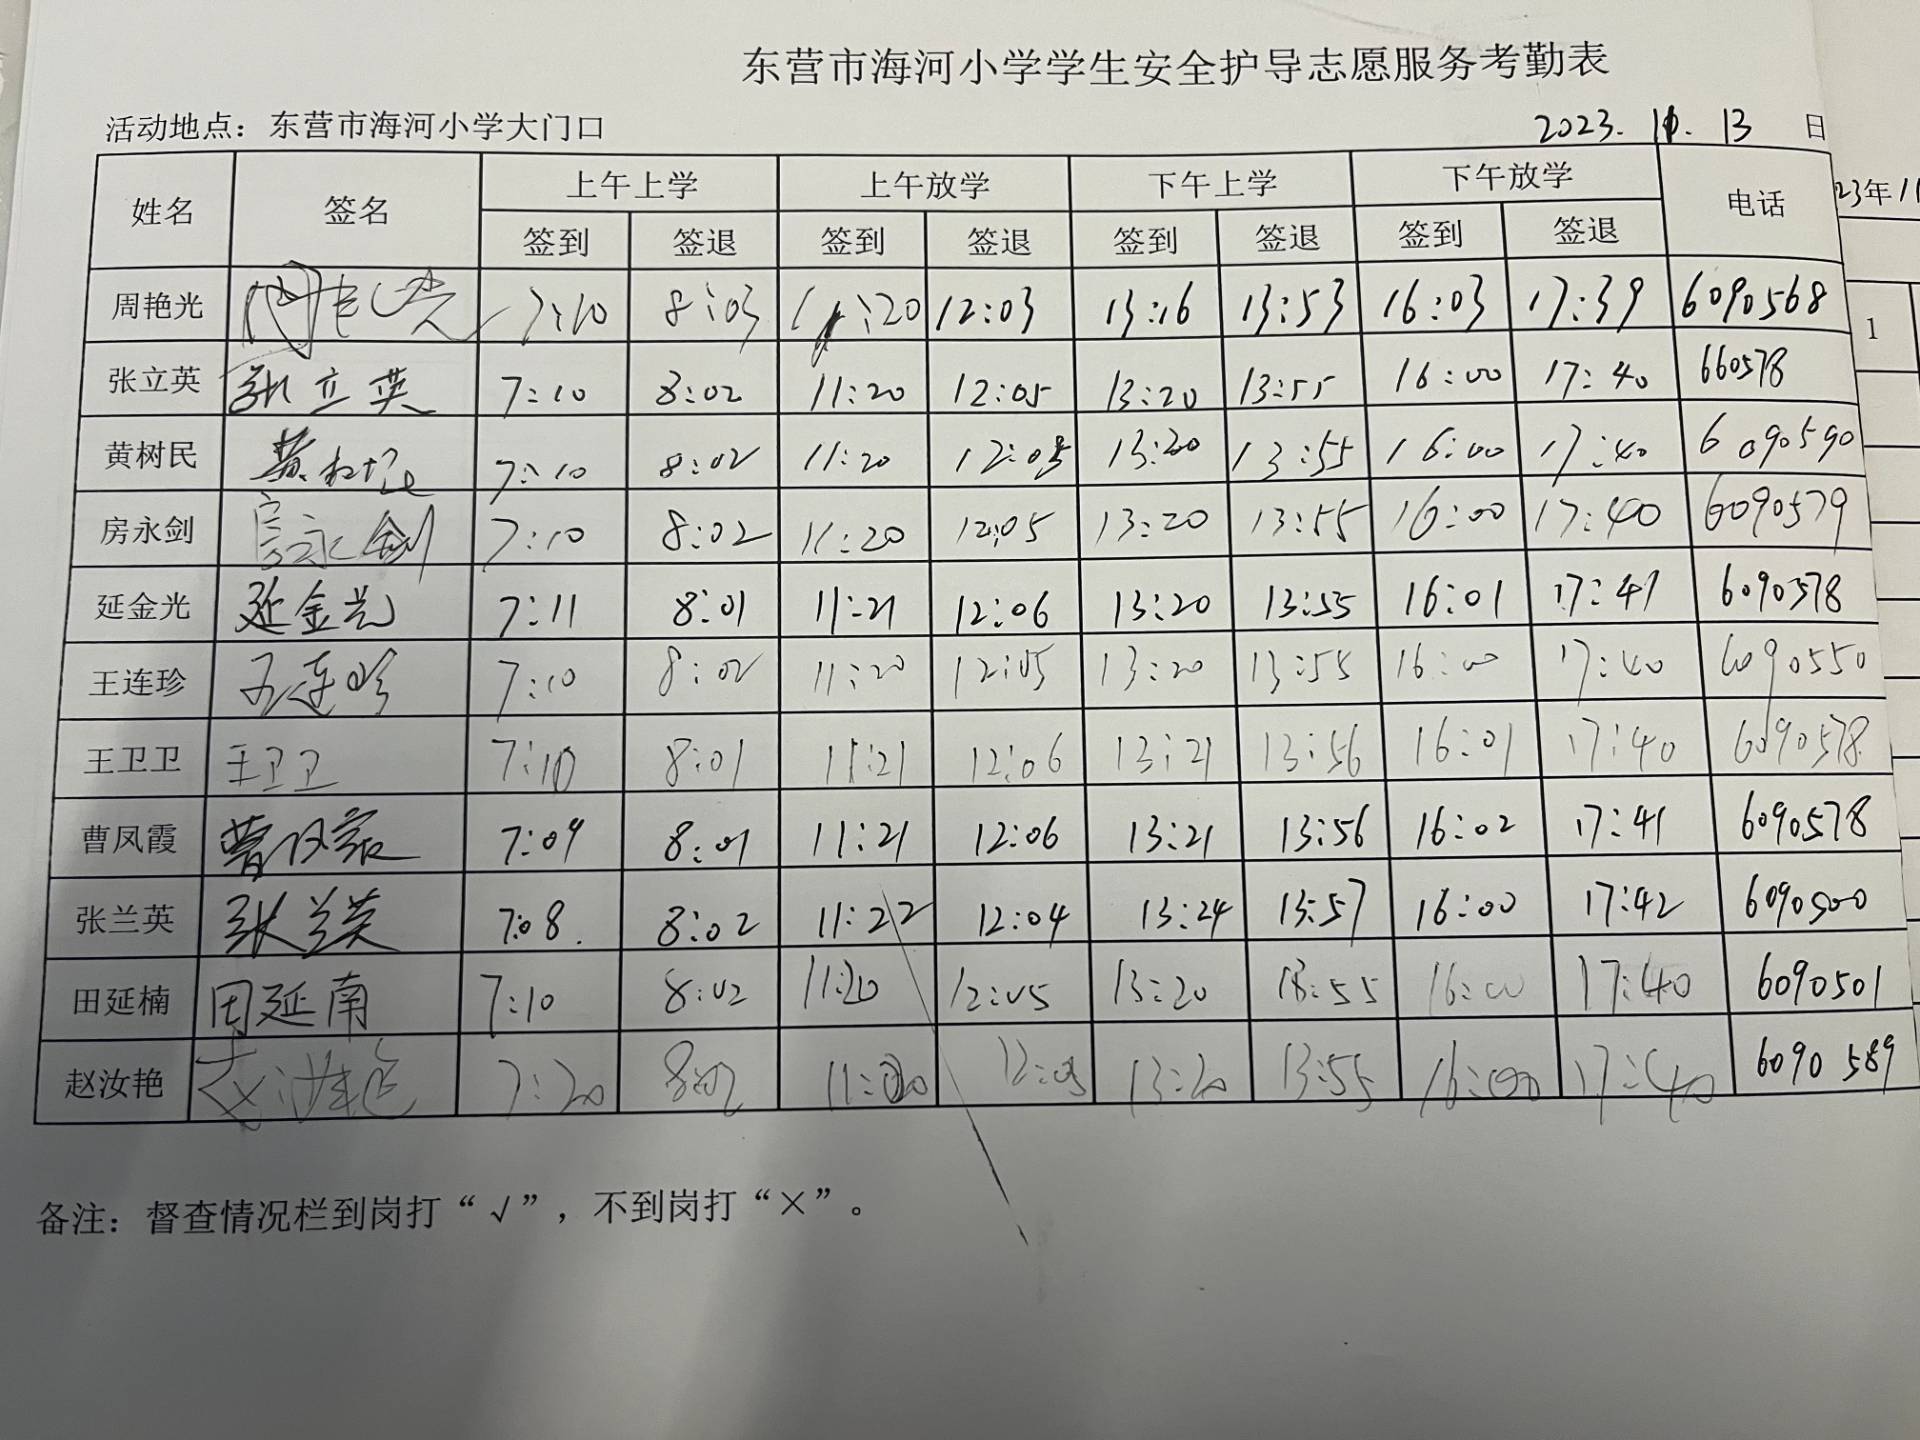 东营市海河小学学生安全护导志愿服务考勤表
活动地点：东营市海河小学大门口 2023. 11. 13 日
姓名 签名 上午上学 上午放学 下午上学 下午放学 电话 23年11
签到 签退 签到 签退 签到 签退 签到 签退
周艳光 周艳光 7:10 8:03 11:20 12:03 13:16 13:53 16:03 17:39 6090568 1
张立英 张立英 7:10 8:02 11:20 12:05 13:20 13:55 16:00 17:40 660578
黄树民 黄树民 7:10 8:02 11:20 12:05 13:20 13:55 16:00 17:40 6090590
房永剑 房永剑 7:10 8:02 11:20 12:05 13:20 13:55 16:00 17:40 6090579
延金光 延金光 7:11 8:01 11:21 12:06 13:20 13:55 16:01 17:41 6090578
王连珍 王连珍 7:10 8:02 11:20 12:05 13:20 13:55 16:00 17:40 6090550
王卫卫 王卫卫 7:10 8:01 11:21 12:06 13:21 13:56 16:01 17:40 6090578
曹凤霞 曹凤霞 7:09 8:01 11:21 12:06 13:21 13:56 16:02 17:41 6090578
张兰英 张兰英 7:08 8:02 11:22 12:04 13:24 13:57 16:00 17:42 6090500
田延楠 田延南 7:10 8:02 11:20 12:05 13:20 13:55 16:00 17:40 6090501
赵汝艳 赵汝艳 7:20 8:02 11:20 12:05 13:20 13:55 16:00 17:40 6090589
备注：督查情况栏到岗打“√”，不到岗打“×”。